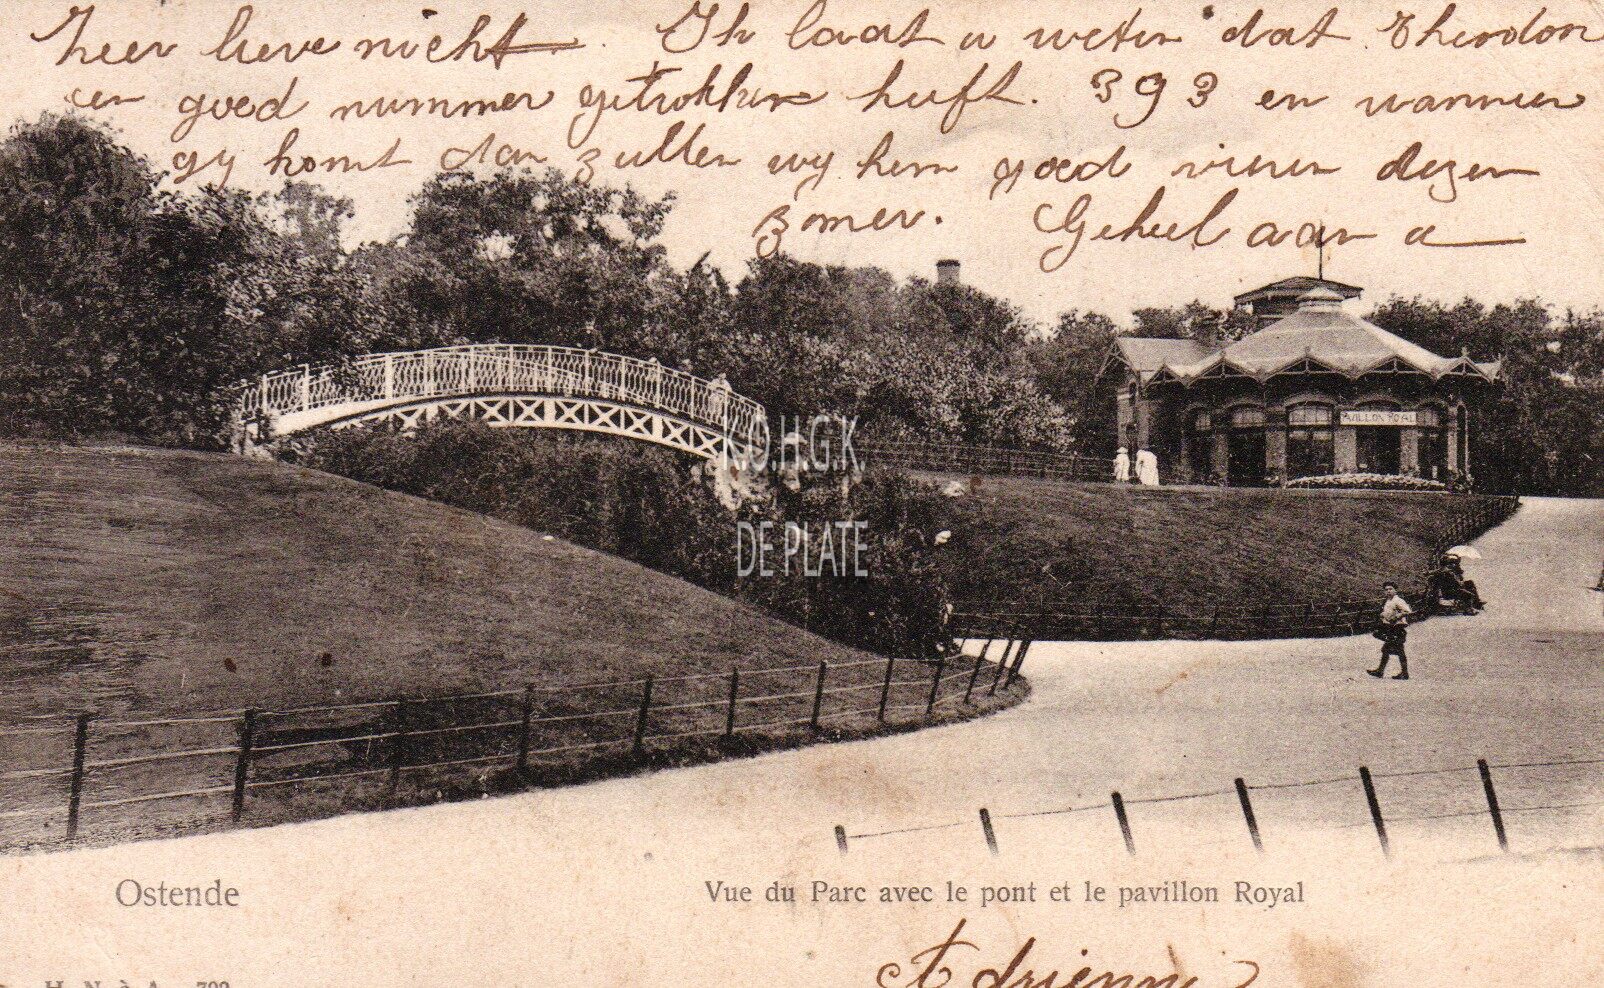 Zeer lieve nicht. Ik laat u weten dat Theodon
een goed nummer getrokken heeft. 393 en wanneer
gy komt dan zullen wy hem goed vieren dezen
zomer. Geheel aan u
PAVILLON ROYAL
K.O.H.G.K.
DE PLATE
Ostende
Vue du Parc avec le pont et le pavillon Royal
Adrienne
H. N. à A. 702